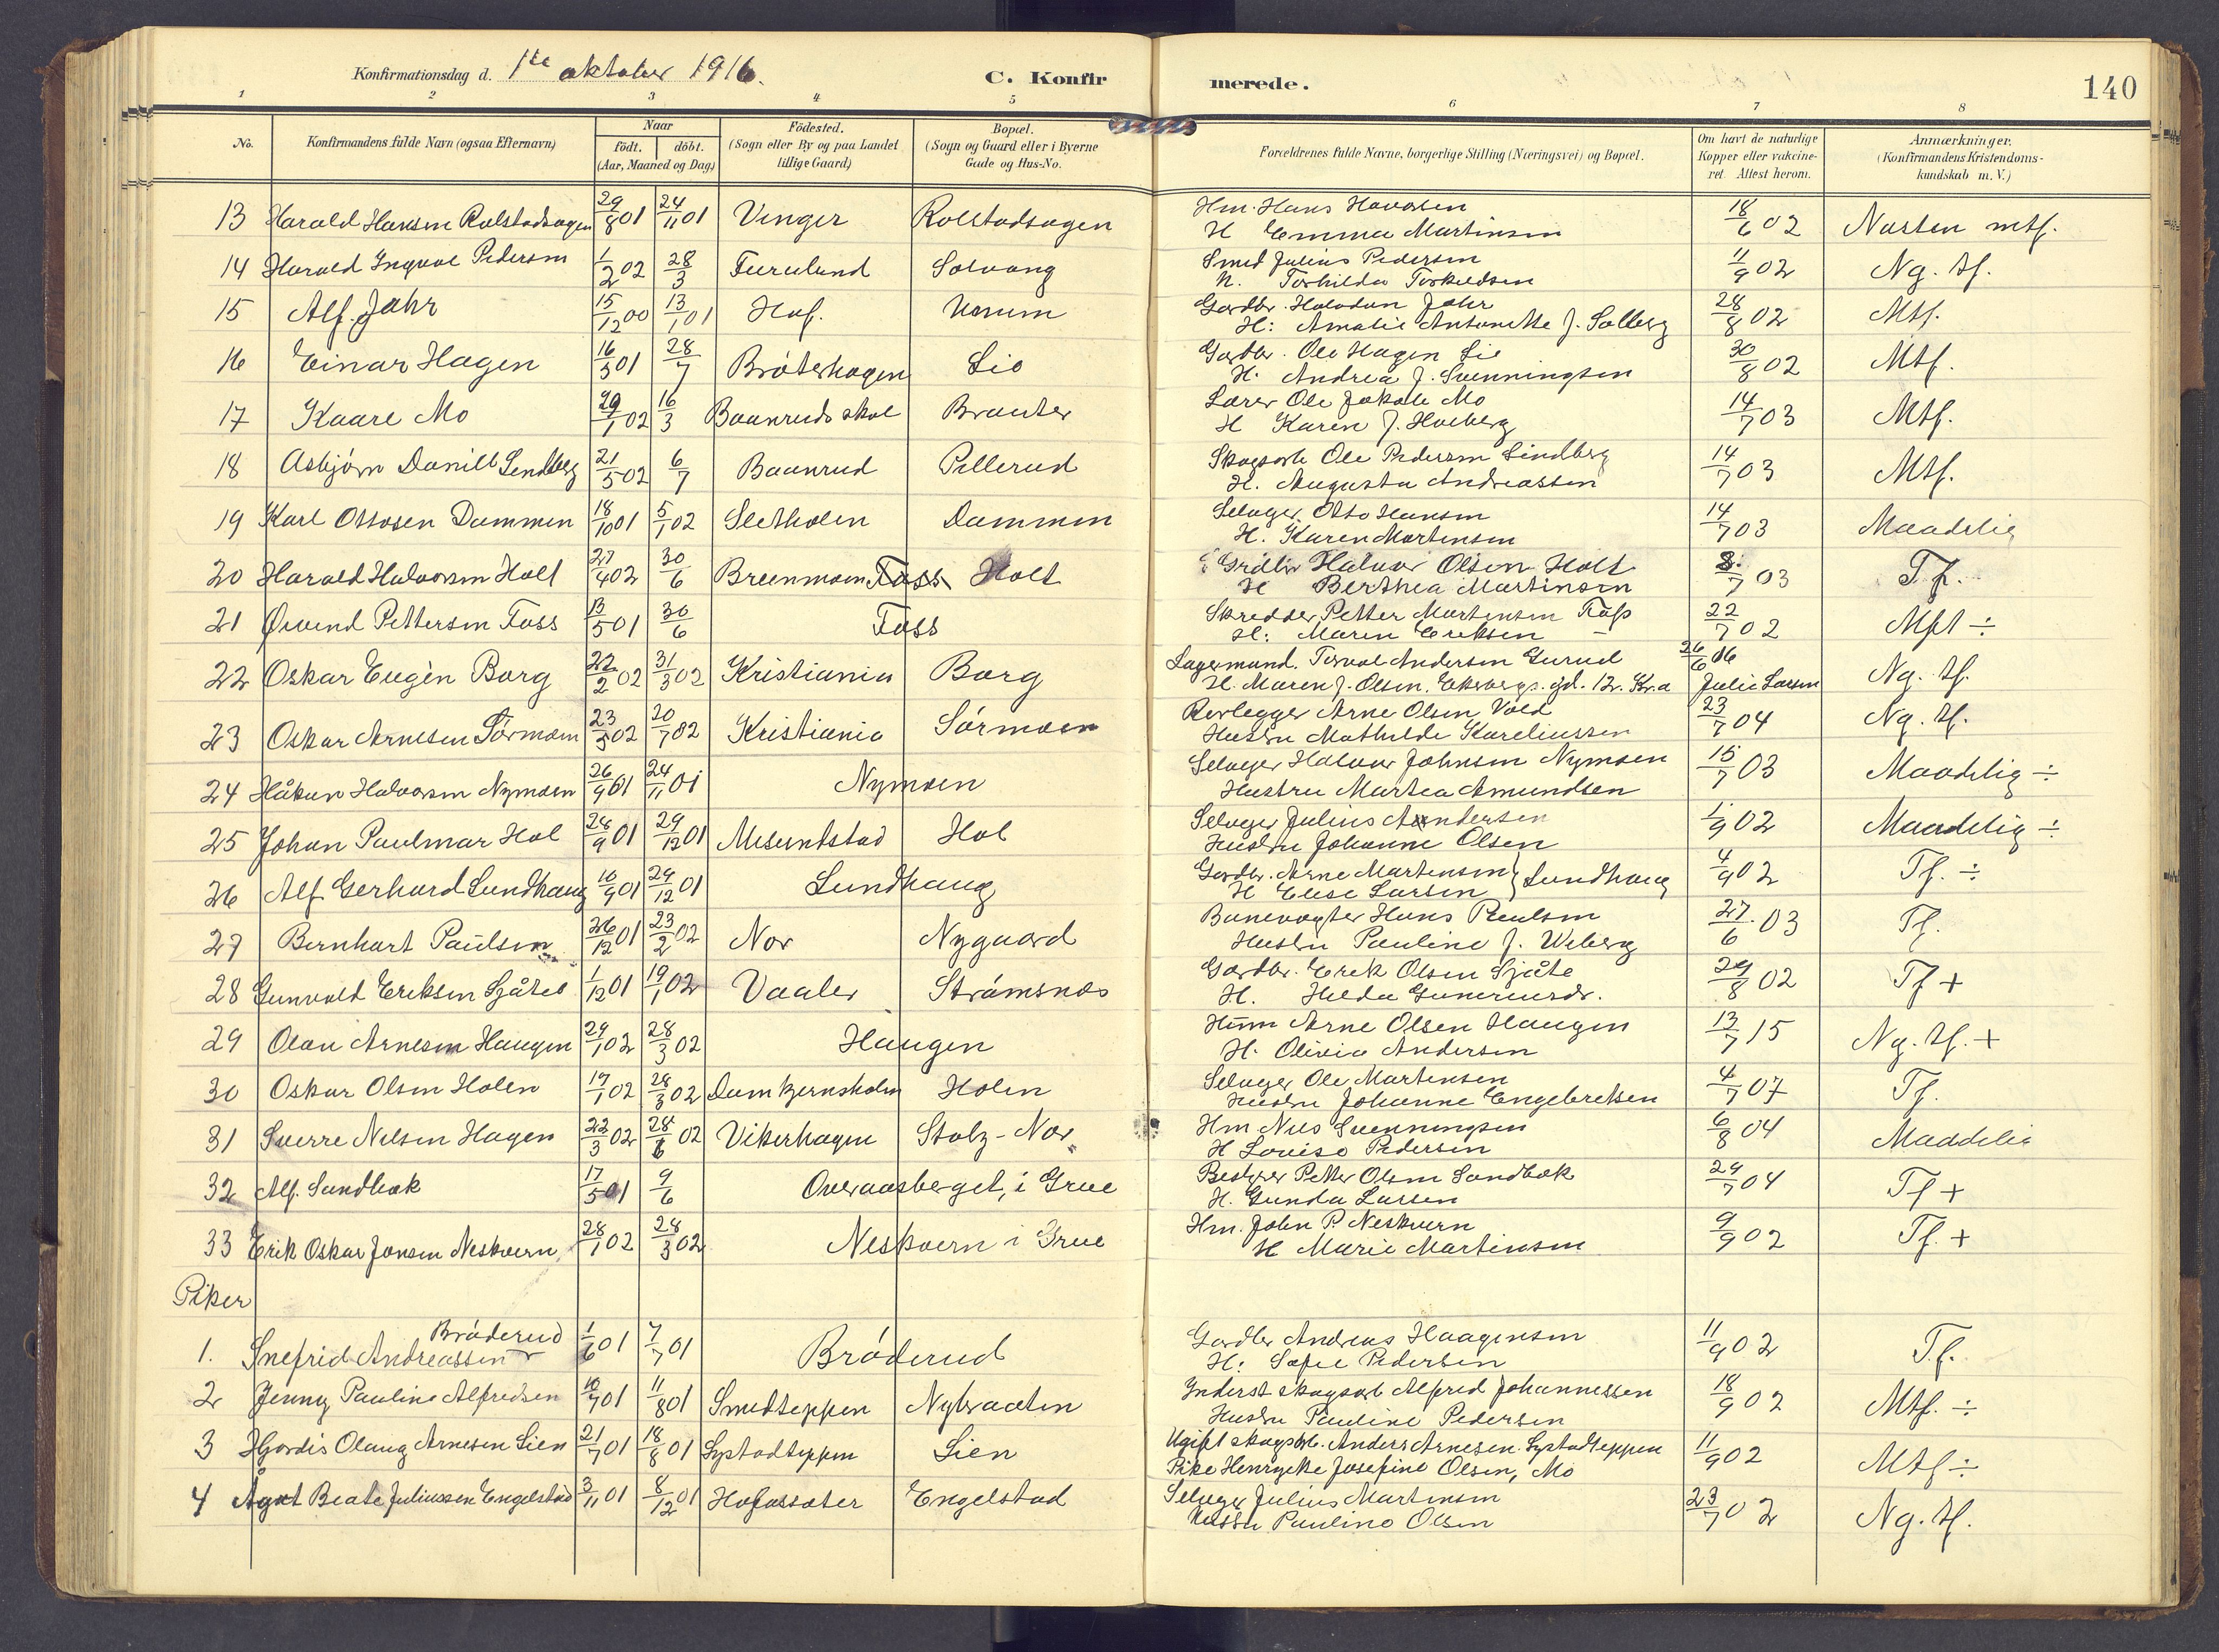 Konfirmationsdag d. 1ste oktober 1916.
C. Konfirmerede.
140
1 2 3 4 5 6 7 8
No. Konfirmandens fulde Navn (ogsaa Efternavn) Naar födt. döbt. (Aar, Maaned og Dag) Födested. (Sogn eller By og paa Landet tillige Gaard) Bopæl. (Sogn og Gaard eller i Byerne Gade og Hus-No. Forældrenes fulde Navne, borgerlige Stilling (Næringsvei) og Bopæl. Om havt de naturlige Kopper eller vakcineret. Attest herom. Anmærkninger. (Konfirmandens Kristendomskundskab m. V.)
13 Harald Hansen Rolstadsagen 29/8 01 24/11 01 Vinger Rolstadsagen Hm. Hans Havorsen 18/6 02 Næsten mtf.
H Emma Martinsen
14 Harald Ingval Pedersen 1/2 02 28/3 Furulund Solvang Smed Julius Pedersen 11/9 02 Ng. tf.
H. Torhilda Torkildsen
15 Alf Jahr 15/12 00 13/1 01 Hof. Narum Gardbr. Halvdan Jahr 28/8 02 Mtf.
H: Amalie Antonette J. Solberg
16 Einar Hagen 16/5 01 28/7 Bråterhagen Lie Gardbr. Ole Hagen Lie 30/8 02 Mtf.
H. Andrea J. Svenningsen
17 Kaare Mo 29/1 02 16/3 Baanruds skole Brauter Lærer Ole Jakob Mo 14/7 03 Mtf.
H Karen J. Hoeberg
18 Asbjörn Daniel Lendberg 21/5 02 6/7 Baanrud Pillerud Skogsarb Ole Pedersen Lindberg 14/7 03 Mtf.
H. Augusta Andreassen
19 Karl Ottosen Dammen 18/10 01 5/1 02 Sletholen Dammen Selveger Otto Hansen 14/7 03 Maadelig
H. Karen Martensen
20 Harald Halvorsen Holt 27/4 02 30/6 Breenmoen Foss Holt Grdbr Halvor Olsen Holt 8/7 03 T.f.
H Berthea Martinsen
21 Øivend Pettersen Foss 13/5 01 30/6 Foss Skredder Petter Martensen Foss 22/7 02 Mft ÷
H: Maren Eriksen –
22 Oskar Eugèn Borg 22/2 02 31/3 02 Kristiania Borg Lagermand. Torval Andersen Gurud 26/6 06 Ng. tf.
H. Maren J. Olsen, Ekebergs. gd. 12. Kr.a Julie Larsen
23 Oskar Arnesen Sörmoen 23/5 02 20/7 02 Kristiania Sörmoen Rørlegger Arne Olsen Vold 23/7 04 Ng. tf.
Hustru Mathilde Kareliussen
24 Håkon Halvorsen Nymoen 26/9 01 24/11 01 Nymoen Selveger Halvor Johnsen Nymoen 15/7 03 Maadelig ÷
Hustru Martea Amundsen
25 Johan Paulmar Hol 28/9 01 29/12 01 Mesuntstad Hol Selveger Julius Andersen 1/9 02 Maadelig ÷
Hustru Johanne Olsen
26 Alf Gerhard Lundhaug 16/9 01 29/12 01 Lundhaug Gardbr. Arne Martensen 4/9 02 Tf. ÷
H Elise Larsen } Lundhaug
27 Bernhart Paulsen 26/12 01 23/2 02 Nor Nygaard Banevogter Hans Paulsen 27/6 03 Tf.
Hustru Pauline J. Weberg
28 Gunvald Eriksen Sjåtil 1/12 01 19/1 02 Vaaler Strömsnes Gardbr. Erik Olsen Sjåte 29/8 02 Tf +
H. Hilda Gunerusdr.
29 Olav Arnesen Haugen 29/1 02 28/3 02 Haugen Hmn Arne Olsen Haugen 13/7 15 Ng. tf. +
H. Olivia Andersen
30 Oskar Olsen Holen 19/1 02 28/3 02 Damkjernsholen Holen Selveger Ole Martensen 4/7 07 Tf.
Hustru Johanne Engebretsen
31 Sverre Nilsen Hagen 22/3 02 28/6 02 Vikerhagen Stolz-Nor. Hm Nils Svenningsen 6/8 04 Maadelig
H Louise Pedersen
32 Alf. Sandbæk 17/5 01 9/6 Overaasberget, i Grue Bestyrer Petter Olsen Sandbæk 29/7 04 Tf +
H. Gunda Larsen
33 Erik Oskar Jonsen Neskvern 28/1 02 28/3 02 Neskvern i Grue Hm. John P. Neskvern 9/9 02 Tf. +
H Marie Martinsen
Piker
Bröderud
1. Snefrid Andreassen 1/6 01 7/7 01 Bröderud Gardbr Andreas Haagensen 11/9 02 T.f.
H: Sofie Pedersen
2 Jenny Pauline Alfredsen 10/7 01 11/8 01 Smedteppen Nybraaten Inderst skogsarb Alfred Johannessen 18/9 02 Mtf. ÷
Hustru Pauline Pedersen
3 Hjordis Olaug Arnesen Lien 21/7 01 18/8 01 Systadteppen Lien Ugift skogsarb. Anders Arnesen. Systadteppen 11/9 02 Mtf ÷
Pike Henrycke Josefine Olsen, Mo
4 Ågot Beate Juliussen Engelstad 3/11 01 8/12 01 Hofossæter Engelstad Selveger Julius Martensen 23/7 02 Ng. tf.
Hustru Pauline Olsen